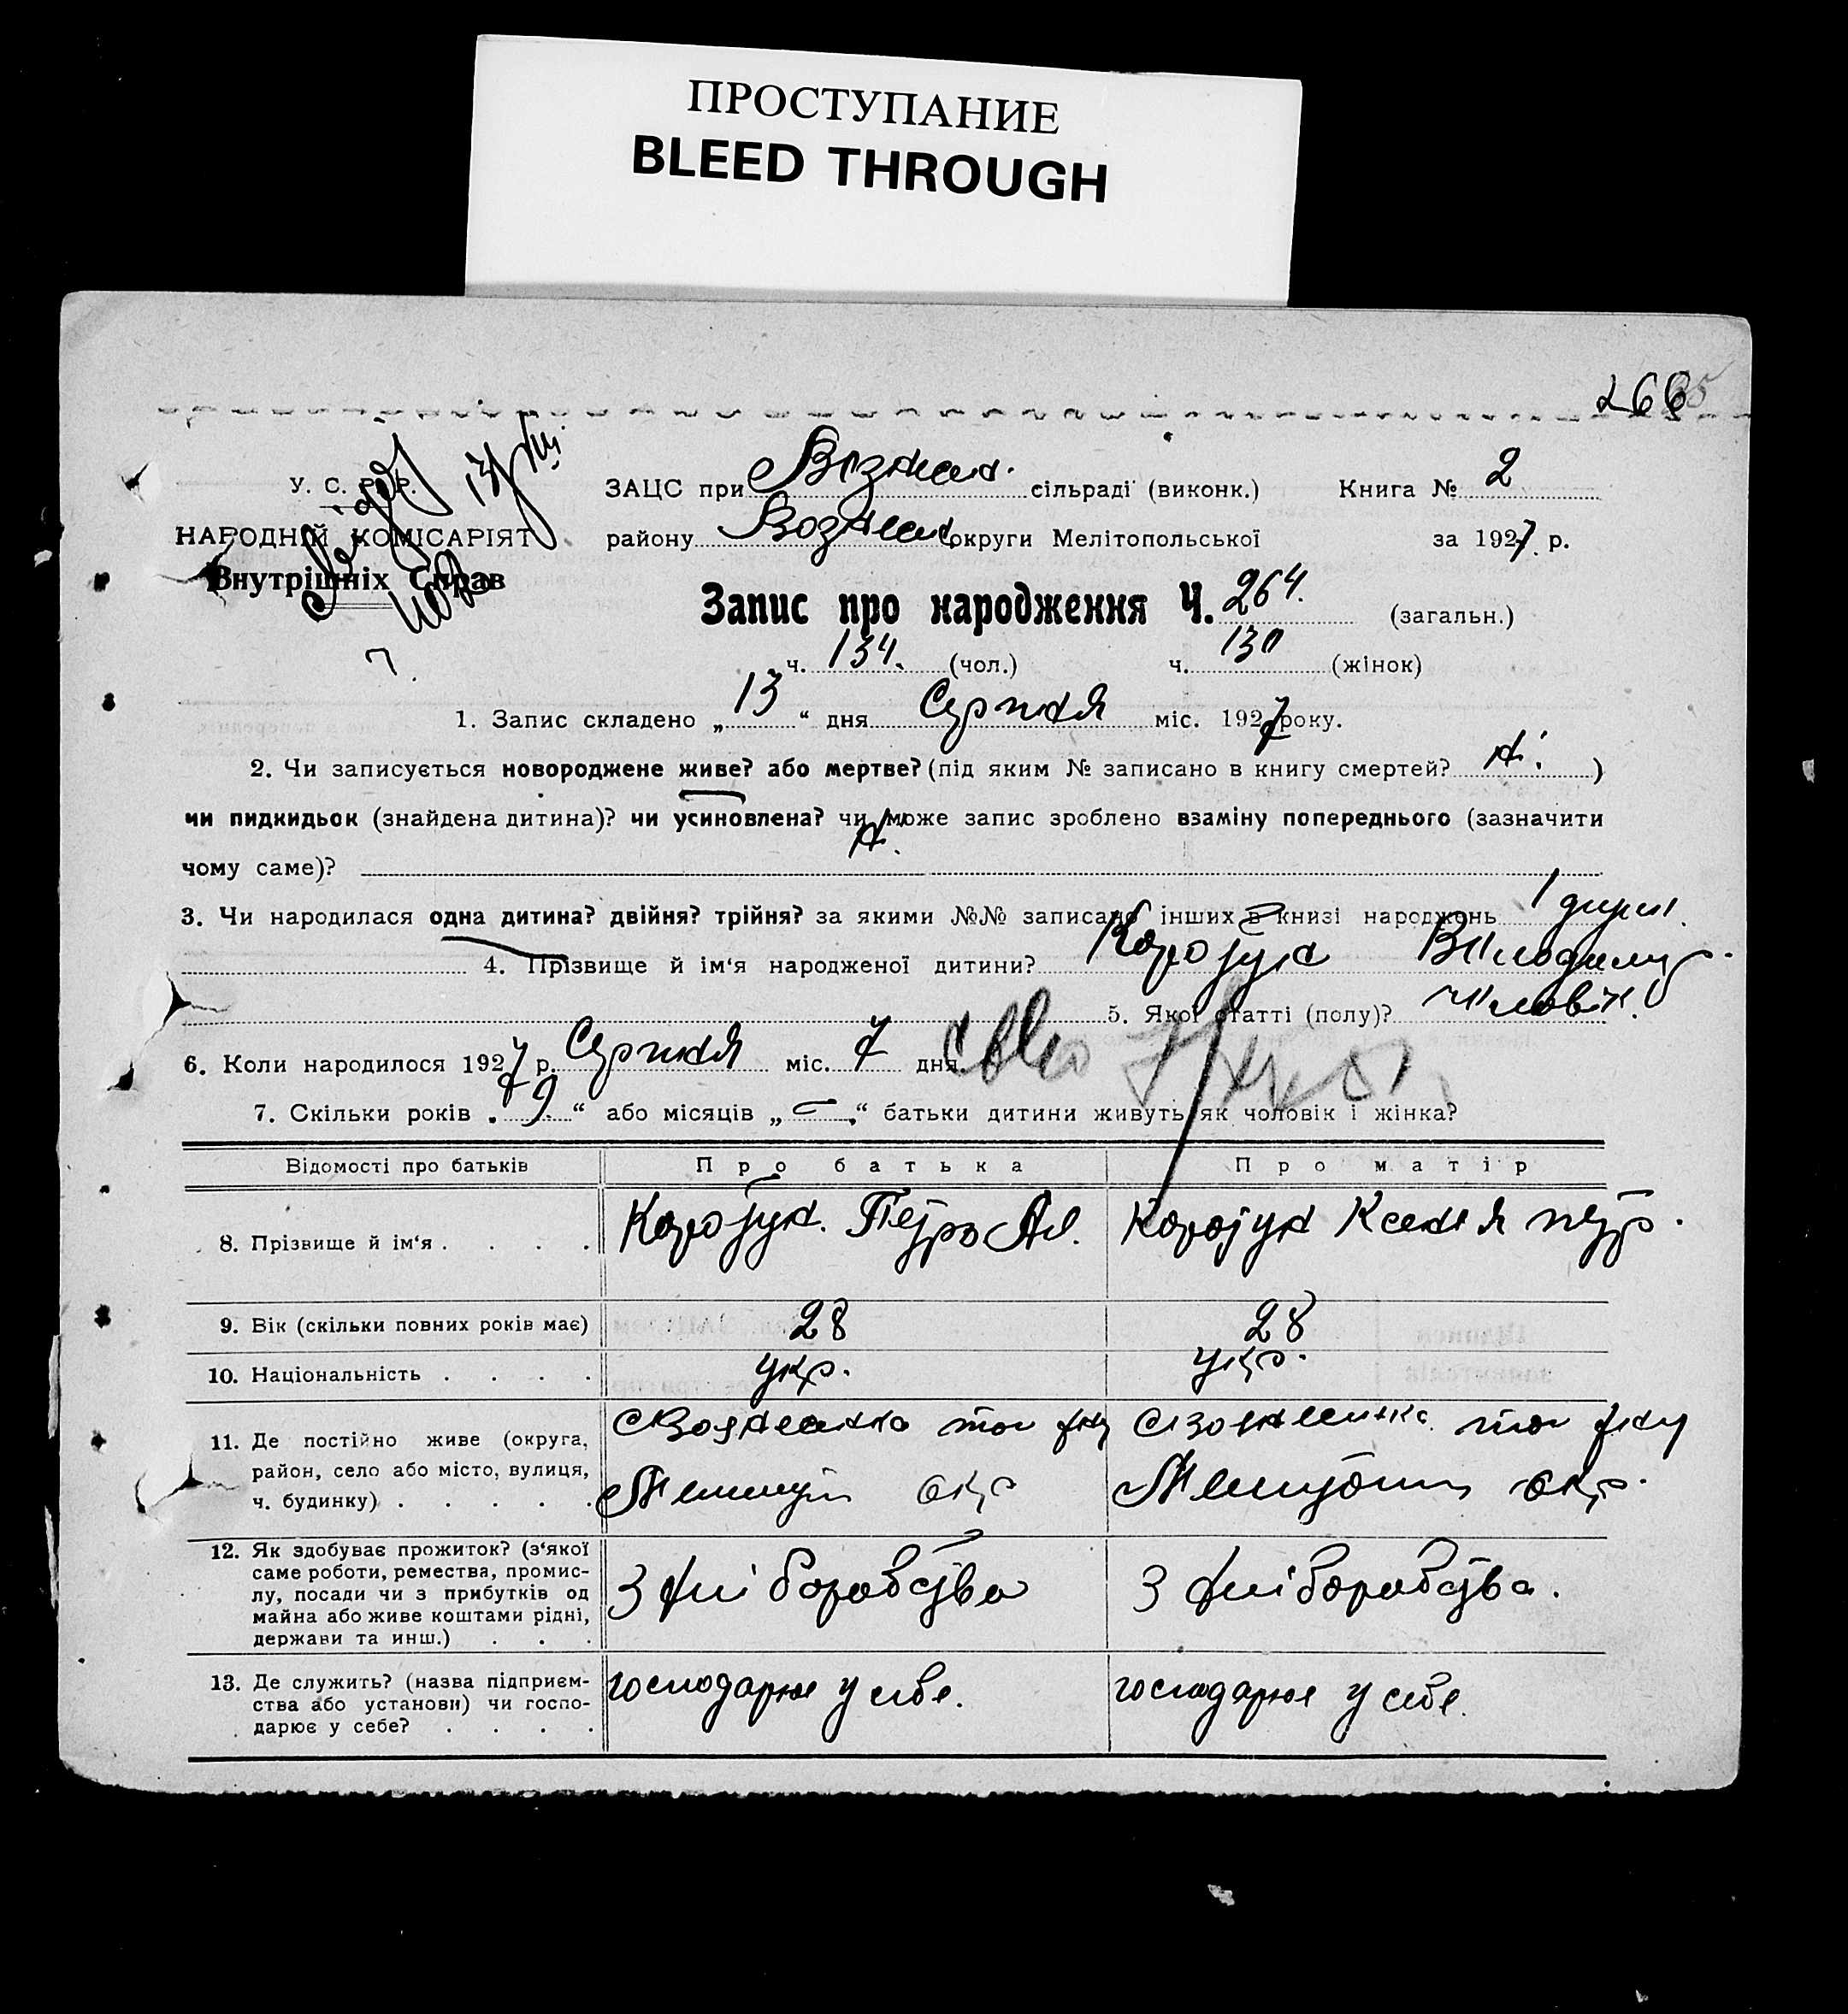 ПРОСТУПАНИЕ
BLEED THROUGH
266
У. С. Р. Р.
НАРОДНІЙ КОМІСАРІЯТ
Внутрішніх Справ
ЗАЦС при Вознес. сільраді (виконк.) Книга № 2
району Вознес округи Мелітопольської за 1927 р.
Запис про народження Ч. 264. (загальн.)
ч. 134. (чол.) ч. 130 (жінок)
1. Запис складено „13“ дня Серпня міс. 1927 року.
2. Чи записується новороджене живе? або мертве? (під яким № записано в книгу смертей? Ні.)
чи пидкидьок (знайдена дитина)? чи усиновлена? чи може запис зроблено взаміну попереднього (зазначити
чому саме)?
3. Чи народилася одна дитина? двійня? трійня? за якими №№ записано інших в книзі народжень 1
4. Прізвище й ім‘я народженої дитини? Коротун Володимир.
5. Якої статті (полу)? Чоловік.
6. Коли народилося 1927 р. Серпня міс. 7 дня.
7. Скільки років „9“ або місяців „—“ батьки дитини живуть як чоловік і жінка?
Відомості про батьків Про батька Про матір
8. Прізвище й ім‘я . . . . Коротун. Петро Ал. Коротун Ксенія Петр.
9. Вік (скільки повних років має) 28 28
10. Національність . . . . укр. укр.
11. Де постійно живе (округа,
район, село або місто, вулиця,
ч. будинку) . . . . . окр окр.
12. Як здобуває прожиток? (з‘якої
саме роботи, ремества, промис-
лу, посади чи з прибутків од
майна або живе коштами рідні,
держави та инш.) . . . З хліборобства З хліборобства.
13. Де служить? (назва підприєм-
ства або установи) чи госпо-
дарює у себе? . . . . господарює у себе. господарює у себе.